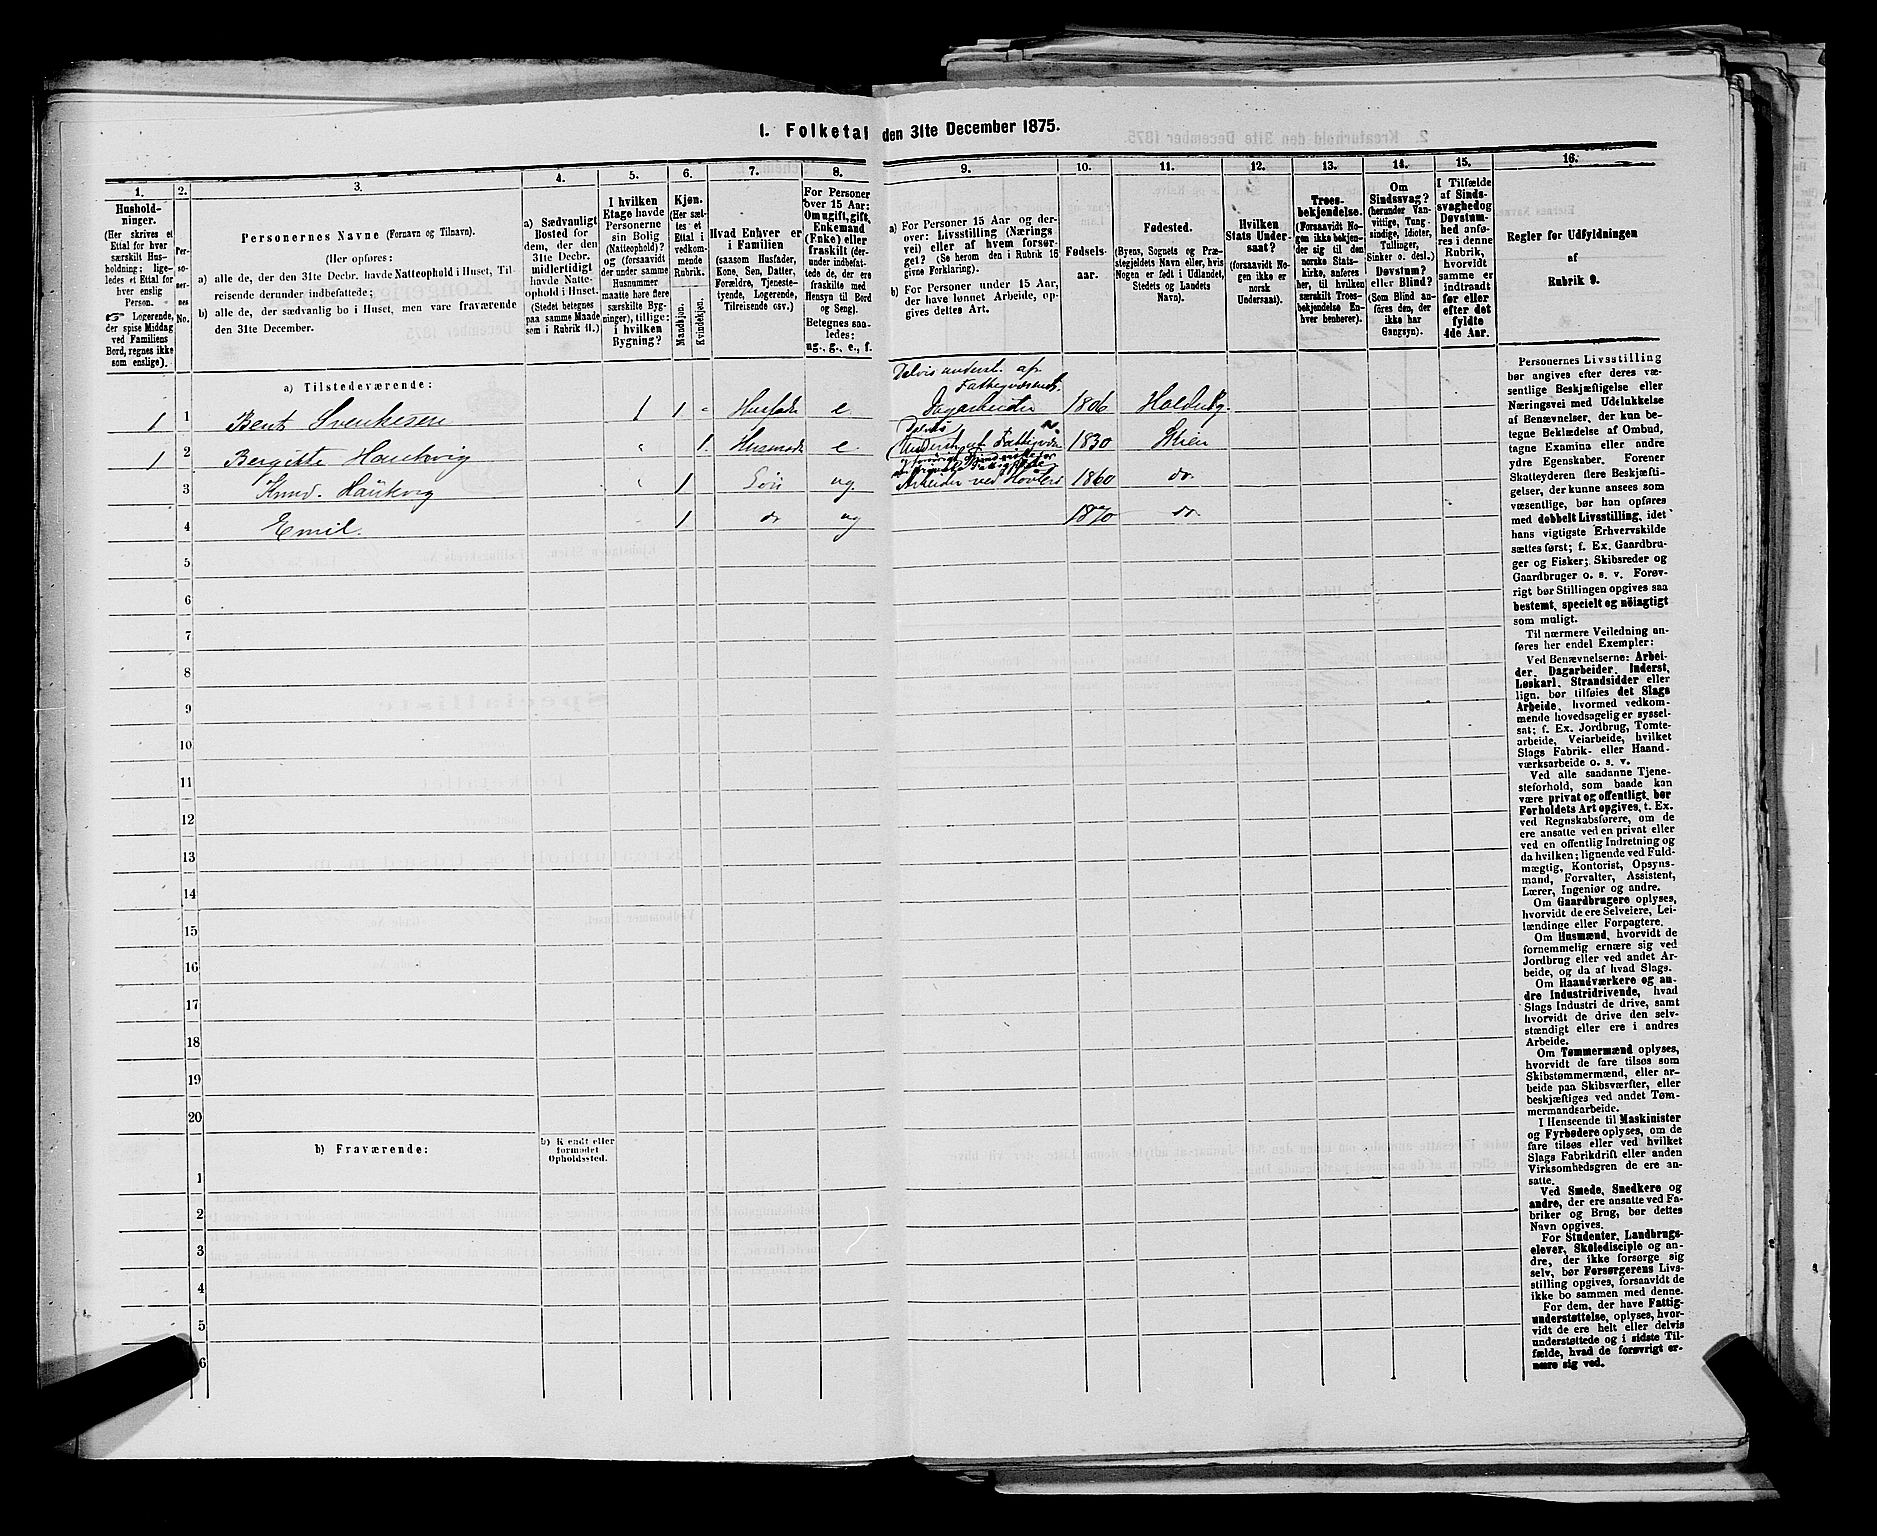 1. Folketal den 31te December 1875.
1.
Hushold-
ninger.
(Her skrives et
Ettal for hver
særskilt Hus-
holdning; lige-
ledes et Ettal for
hver enslig
Person.
☞ Logerende,
der spise Middag
ved Familiens
Bord, regnes ikke
som enslige).
2.
Per-
so-
nernes
No.
3.
Personernes Navne (Fornavn og Tilnavn).
(Her opføres:
a) alle de, der den 31te Decbr. havde Natteophold i Huset, Til-
reisende derunder indbefattede;
b) alle de, der sædvanlig bo i Huset, men vare fraværende
den 31te December.
4.
a) Sædvanligt
Bosted for
dem, der den
31te Decbr.
midlertidigt
havde Natte-
ophold i Huset.
(Stedet betegnes
paa samme Maade
som i Rubrik 11.)
5.
I hvilken
Etage havde
Personerne
sin Bolig
(Natteophold)?
og (forsaavidt
der under samme
Husnummer
maatte høre flere
særskilte Byg-
ninger), tillige:
i hvilken
Bygning?
6.
Kjøn.
(Her sæt-
tes et
Ettal i
vedkom-
mende
Rubrik.
Mandkjøn.
Kvindekjøn.
7.
Hvad Enhver er
i Familien
(saasom Husfader,
Kone, Søn, Datter,
Forældre, Tjeneste-
tyende, Logerende,
Tilreisende osv.)
8.
For Personer
over 15 Aar:
Om ugift, gift,
Enkemand
(Enke) eller
fraskilt (der-
under indbefat-
tede de, der ere
fraskilte med
Hensyn til Bord
og Seng).
Betegnes saa-
ledes:
ug., g., e., f.
9.
a) For Personer 15 Aar og der-
over: Livsstilling (Nærings
vei) eller af hvem forsør-
get? (Se herom den i Rubrik 16
givne Forklaring).
b) For Personer under 15 Aar,
der have lønnet Arbeide, op-
gives dettes Art.
10.
Fødsels-
aar.
11.
Fødested.
(Byens, Sognets og Præ-
stegjeldets Navn eller, hvis
Nogen er født i Udlandet,
Stedets og Landets
Navn).
12.
Hvilken
Stats Under-
saat?
(forsaavidt No-
gen ikke er
norsk
Undersaat).
13.
Troes-
bekjendelse.
(Forsaavidt No-
gen ikke bekjen-
der sig til den
norske Stats-
kirke, anføres
her, til hvilken
særskilt Troes-
bekjendelse En-
hver henhører).
14.
Om
Sindssvag?
(herunder Van-
vittige, Tung-
sindige, Idioter,
Tullinger,
Sinker o. desl.)
Døvstum?
eller Blind?
(Som Blind an-
føres den, der
ikke har
Gangsyn).
15.
I Tilfælde
af Sinds-
svaghed og
Døvstum-
hed anfø-
res i denne
Rubrik,
hvorvidt
samme er
indtraadt
før eller
efter det
fyldte
4de Aar.
16.
Regler for Udfyldningen
af
Rubrik 9.
a) Tilstedeværende:
Delvis underst. af
1 1 Bent Svenkesen 1 1 - Husfader e Dagarbeider 1806
1 2 Bergitte Haukvig " 1. Husmoder e 1830 Skien
3 Knud. Haukvig " 1 Søn ug Arbeider ved 1860 do.
4 Emil. 1 do ug 1870 do.
5
6
7
8
9
10
11
12
13
14
15
16
17
18
19
20
b) Fraværende:
b) Kjendt eller
formodet
Opholdssted.
1
2
3
4
5
6
Personernes Livsstilling
bør angives efter deres væ-
sentlige Beskjæftigelse eller
Næringsvei med Udelukkelse
af Benævnelser, der kun be-
tegne Beklædelse af Ombud,
tagne Examina eller andre
ydre Egenskaber. Forener
Skatteyderen flere Beskjæfti-
gelser, der kunne ansees som
væsentlige, bør han opføres
med dobbelt Livsstilling, idet
hans vigtigste Erhvervskilde
sættes først; f. Ex. Gaardbru-
ger og Fisker; Skibsreder og
Gaardbruger o. s. v. Forøv-
rigt bør Stillingen opgives saa
bestemt, specielt og nøiagtigt
som muligt.
Til nærmere Veiledning an-
føres her endel Exempler:
Ved Benævnelserne: Arbei-
der, Dagarbeider, Inderst,
Løskarl, Strandsidder eller
lign. bør tilføies det Slags
Arbeide, hvormed vedkom-
mende hovedsagelig er syssel-
sat; f. Ex. Jordbrug, Tomte-
arbeide, Veiarbeide, hvilket
Slags Fabrik- eller Haand-
værksarbeide o. s. v.
Ved alle saadanne Tjene-
steforhold, som baade kan
være privat og offentligt, bør
Forholdets Art opgives, t. Ex.
ved Regnskabsførere, om de
ere ansatte ved en privat eller
ved en offentlig Indretning og
da hvilken; lignende ved Fuld-
mægtig, Kontorist, Opsyns-
mand, Forvalter, Assistent,
Lærer, Ingeniør og andre.
Om Gaardbrugere oplyses,
hvorvidt de ere Selveiere, Lei-
lændinge eller Forpagtere.
Om Husmænd, hvorvidt de
fornemmelig ernære sig ved
Jordbrug eller ved andet Ar-
beide, og da af hvad Slags.
Om Haandværkere og an-
dre Industridrivende, hvad
Slags Industri de drive, samt
hvorvidt de drive den selv-
stændigt eller ere i andres
Arbeide.
Om Tømmermænd oplyses,
hvorvidt de fare tilsøs som
Skibstømmermænd, eller ar-
beide paa Skibsværfter, eller
beskjæftiges ved andet Tøm-
mermandsarbeide.
I Henseende til Maskinister
og Fyrbødere oplyses, om de
fare tilsøs eller ved hvilket
Slags Fabrikdrift eller anden
Virksomhedsgren de ere an-
satte.
Ved Smede, Snedkere og
andre, der ere ansatte ved Fa-
briker og Brug, bør dettes
Navn opgives.
For Studenter, Landbrugs-
elever, Skoledisciple og an-
dre, der ikke forsørge sig
selv, bør Forsørgerens Livs-
stilling opgives, forsaavidt de
ikke bo sammen med denne.
For dem, der have Fattig-
understøttelse, oplyses, hvor-
vidt de ere helt eller delvis
understøttede og i sidste Til-
fælde, hvad de forøvrigt er-
nære sig ved.